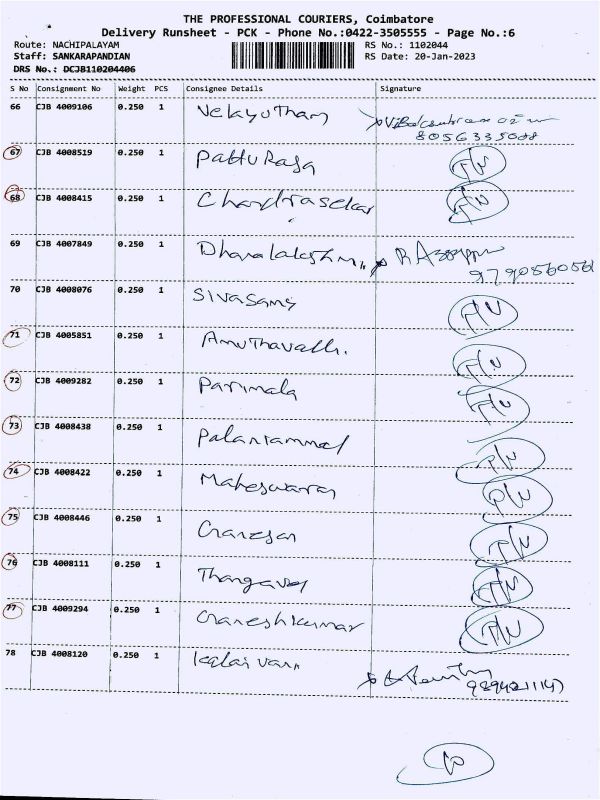 THE PROFESSIONAL COURIERS, Coimbatore
Delivery Runsheet - PCK - Phone No.:0422-3505555 - Page No.:6
Route: NACHIPALAYAM RS No.: 1102044
Staff: SANKARAPANDIAN RS Date: 20-Jan-2023
DRS No.: DCJB110204406
S No Consignment No Weight PCS Consignee Details Signature
66 CJB 4009106 0.250 1 Velayutham
8056335088
67 CJB 4008519 0.250 1 Pattu Raja P/N
68 CJB 4008415 0.250 1 Chandrasekar P/N
69 CJB 4007849 0.250 1 Dhanalakshmi
979056056
70 CJB 4008076 0.250 1 Sivasamy P/N
71 CJB 4005851 0.250 1 Amuthavalli. P/N
72 CJB 4009282 0.250 1 Parimala P/N
73 CJB 4008438 0.250 1 Palaniammal P/N
74 CJB 4008422 0.250 1 Maheswaran P/N
75 CJB 4008446 0.250 1 Ganesan P/N
76 CJB 4008111 0.250 1 Thangavel P/N
77 CJB 4009294 0.250 1 Ganeshkumar P/N
78 CJB 4008120 0.250 1 Kalaivani